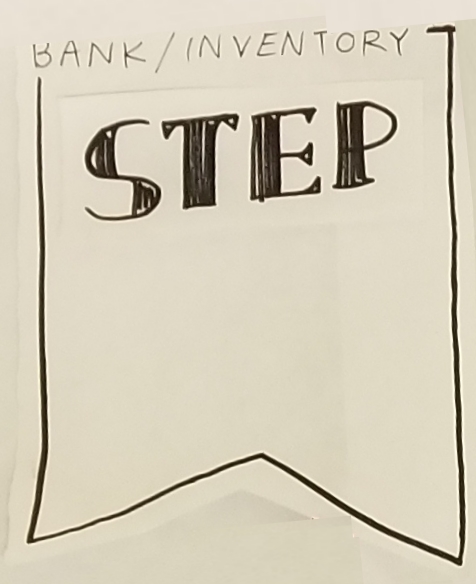 BANK/INVENTORY
STEP